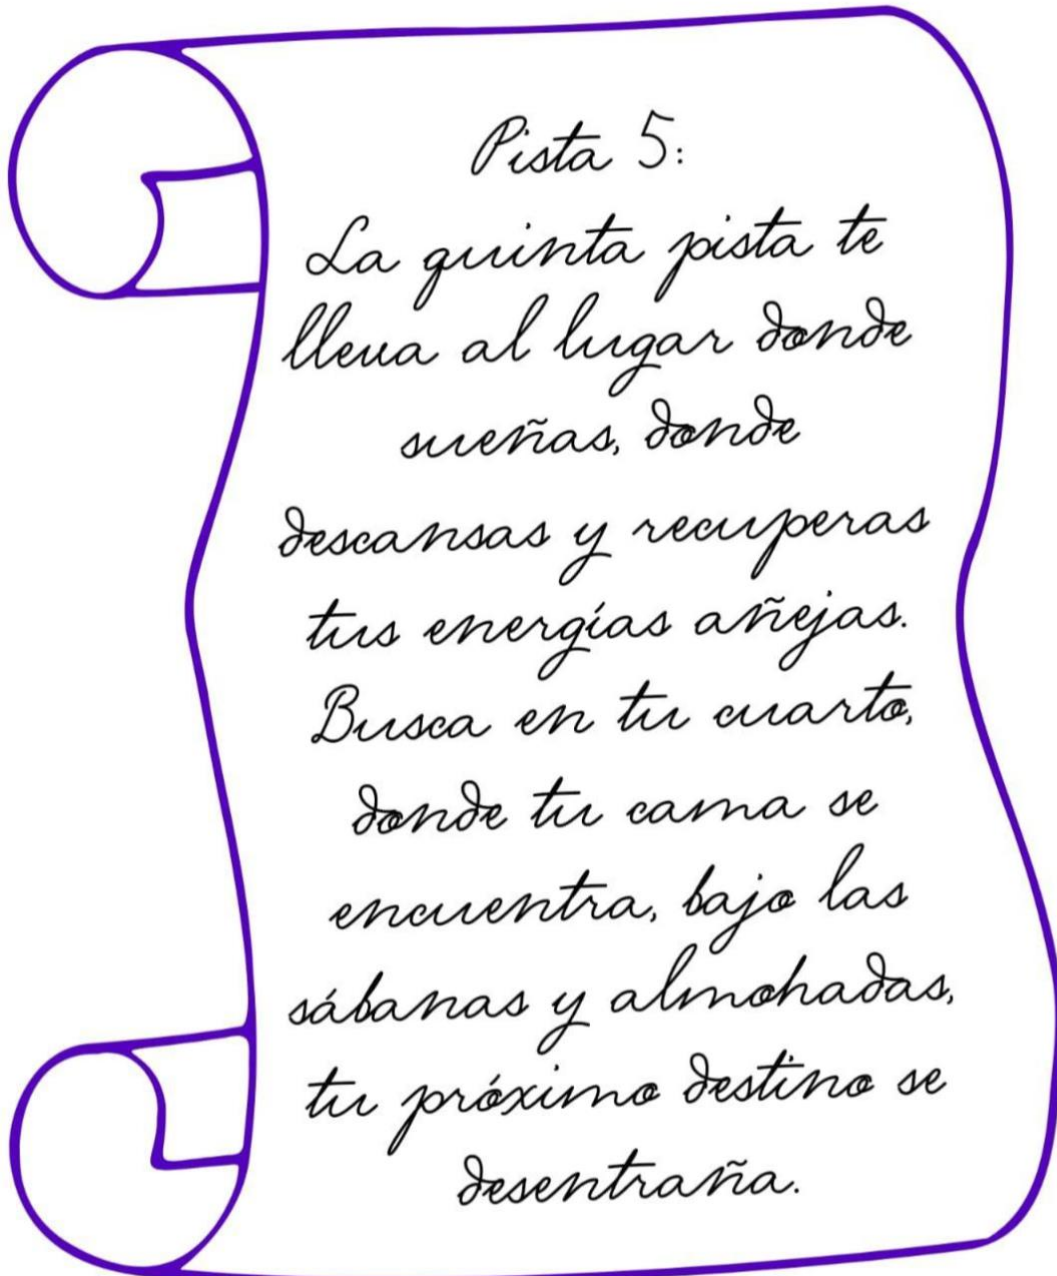 Pista 5:
La quinta pista te
lleva al lugar donde
sueñas, donde
descansas y recuperas
tus energías añejas.
Busca en tu cuarto,
donde tu cama se
encuentra, bajo las
sábanas y almohadas,
tu próximo destino se
desentraña.